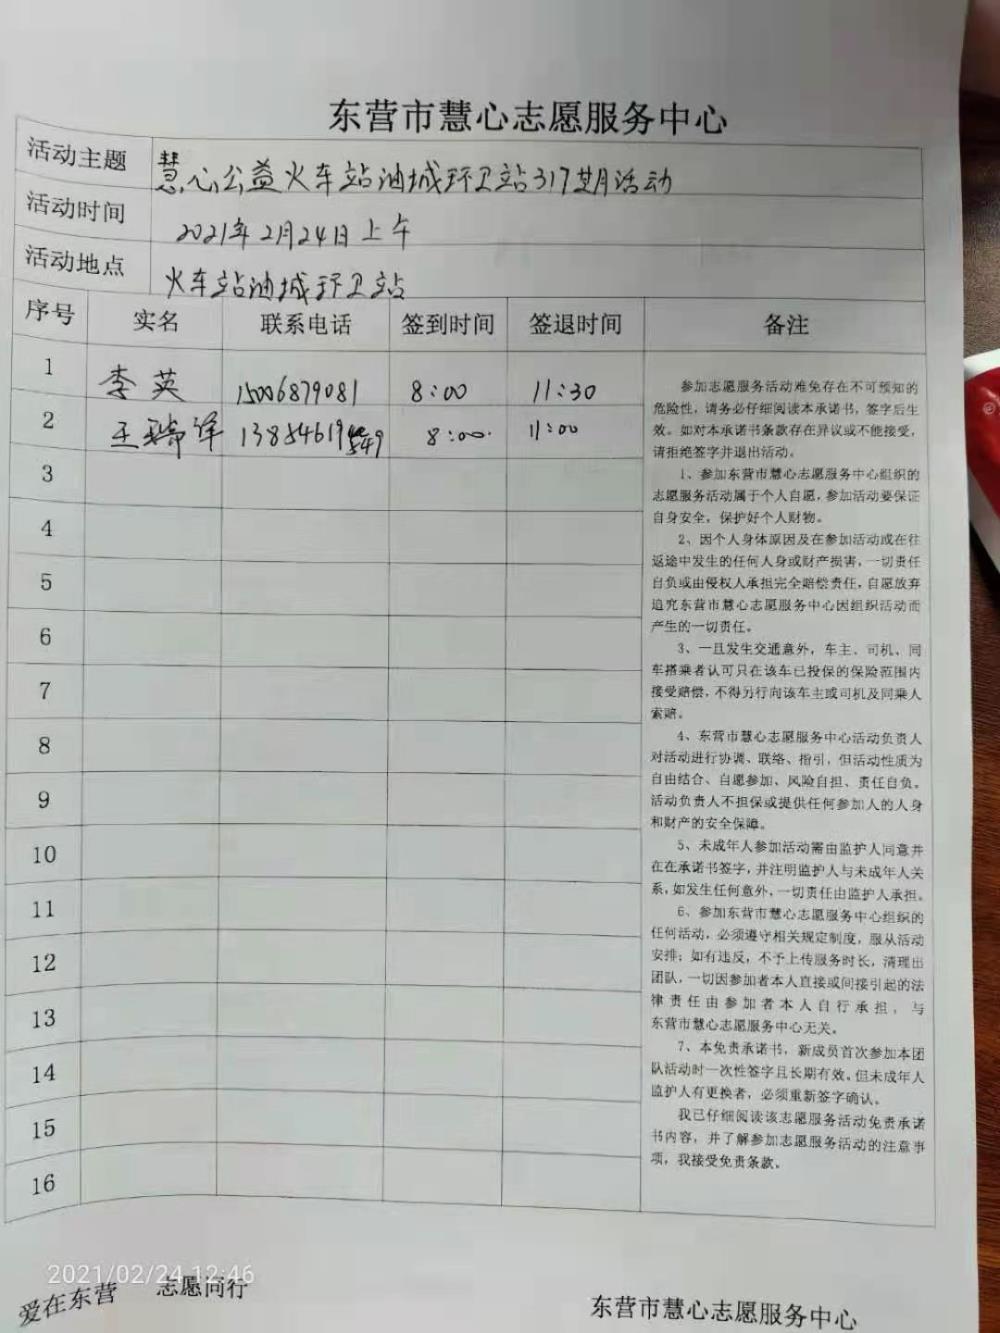 东营市慧心志愿服务中心
活动主题 慧心公益火车站油城环卫站317期活动
活动时间 2021年2月24日上午
活动地点 火车站油城环卫站
序号 实名 联系电话 签到时间 签退时间 备注
1 李英 15006879081 8:00 11:30
2 8:00 11:00
3
4
5
6
7
8
9
10
11
12
13
14
15
16
参加志愿服务活动难免存在不可预知的
危险性，请务必仔细阅读本承诺书，签字后生
效。如对本承诺书条款存在异议或不能接受，
请拒绝签字并退出活动。
1、参加东营市慧心志愿服务中心组织的
志愿服务活动属于个人自愿，参加活动要保证
自身安全，保护好个人财物。
2、因个人身体原因及在参加活动或在往
返途中发生的任何人身或财产损害，一切责任
自负或由侵权人承担完全赔偿责任，自愿放弃
追究东营市慧心志愿服务中心因组织活动而
产生的一切责任。
3、一旦发生交通意外，车主、司机、同
车搭乘者认可只在该车已投保的保险范围内
接受赔偿，不得另行向该车主或司机及同乘人
索赔。
4、东营市慧心志愿服务中心活动负责人
对活动进行协调、联络、指引，但活动性质为
自由结合、自愿参加、风险自担、责任自负。
活动负责人不担保或提供任何参加人的人身
和财产的安全保障。
5、未成年人参加活动需由监护人同意并
在在承诺书签字，并注明监护人与未成年人关
系，如发生任何意外，一切责任由监护人承担。
6、参加东营市慧心志愿服务中心组织的
任何活动，必须遵守相关规定制度，服从活动
安排；如有违反，不予上传服务时长，清理出
团队，一切因参加者本人直接或间接引起的法
律责任由参加者本人自行承担，与
东营市慧心志愿服务中心无关。
7、本免责承诺书，新成员首次参加本团
队活动时一次性签字且长期有效。但未成年人
监护人有更换者，必须重新签字确认。
我已仔细阅读该志愿服务活动免责承诺
书内容，并了解参加志愿服务活动的注意事
项，我接受免责条款。
2021/02/24 12:46
爱在东营 志愿同行
东营市慧心志愿服务中心